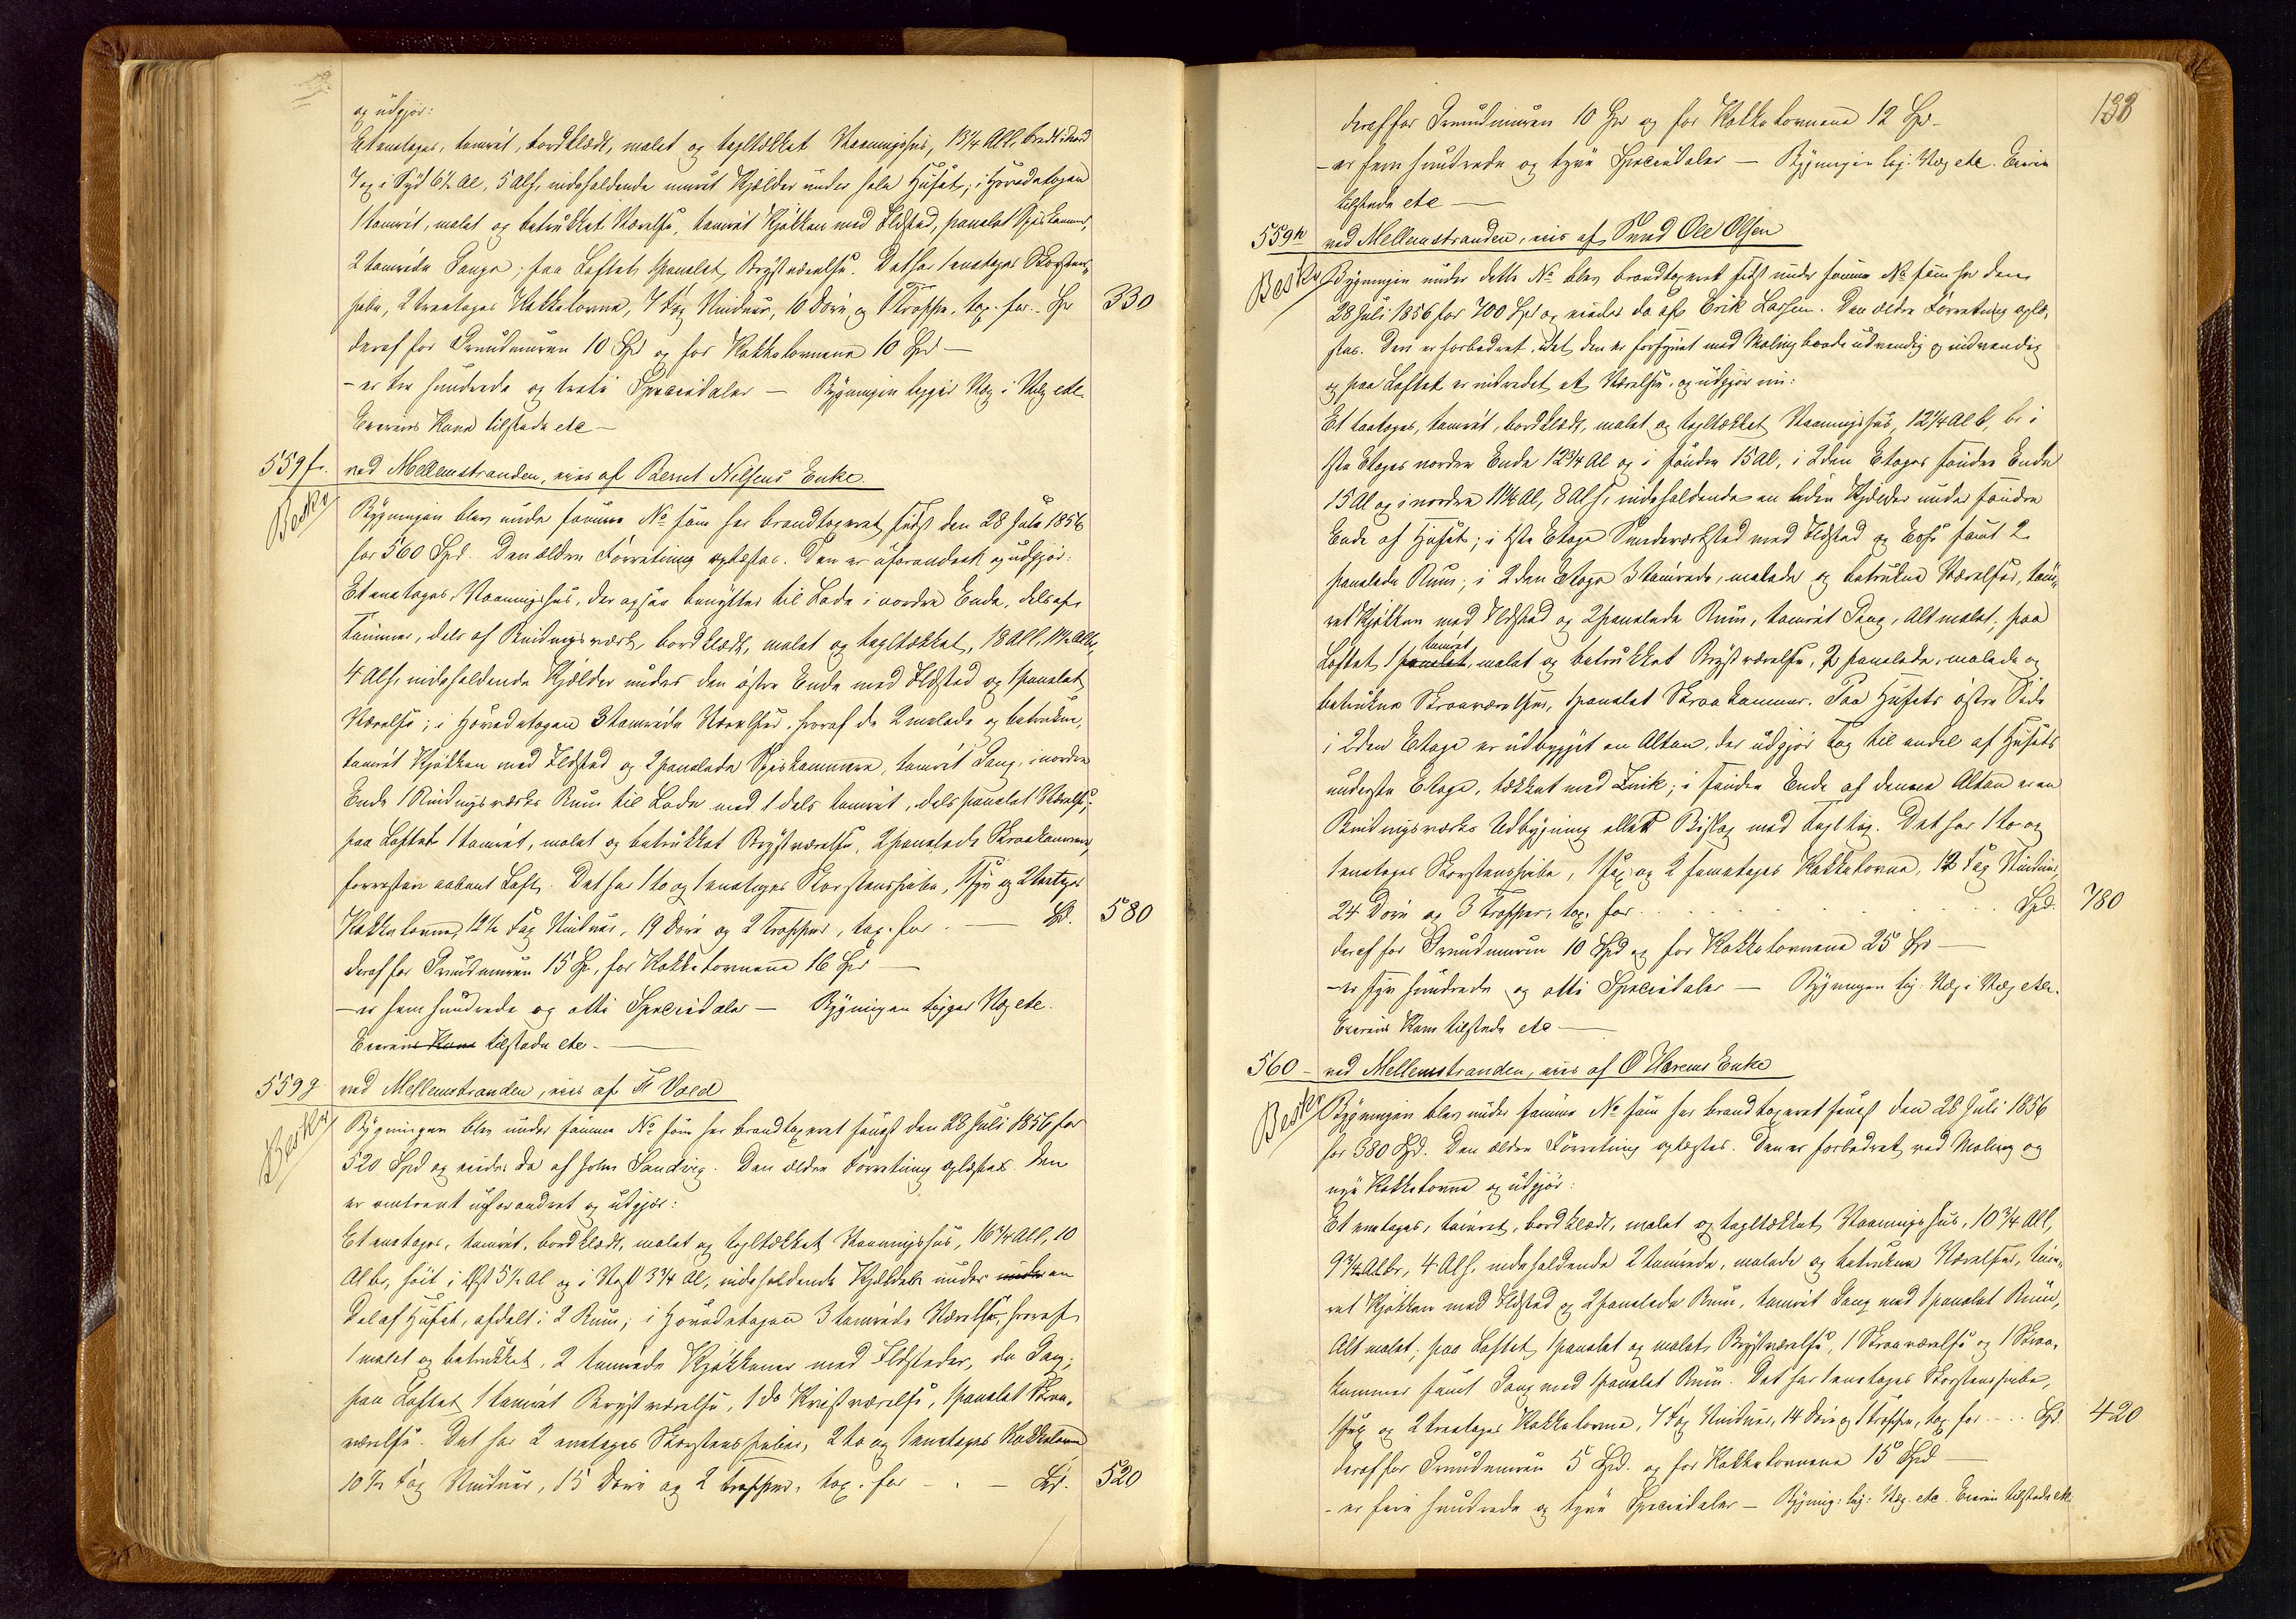 og udgjør:
Et enetages, tømret, bordklædt, malet og tegltækket Vaaningshus, 13¼ Al l, bredt i Nord
7 og i Syd 6½ Al, 5 Al h, indeholdende muret Kjelder under hele Huset; i Hovedetagen
1 tømret, malet og betrukket Værelse, tømret Kjøkken med Ildsted, panelet Spiskammer,
2 tømrede Gange; paa Loftet 1 panelet Brystværelse. Det har 1 enetages Skorstens-
pibe, 2 treetages Kakkelovne, 7 Fag Vinduer, 10 Døre og 1 Trappe, tax. for - Spd 330
deraf for Grundmuren 10 Spd og for Kakkelovnene 10 Spd —
- er tre hundrede og treti Speciedaler — Bygningen ligger Væg i Væg etc.
Eierens Kone tilstede etc —
559 f. ved Mellemstranden, eies af Bernt Nilsens Enke
Beskr
Bygningen blev under samme No som her brandtaxeret sidst den 28 Juli 1856
for 560 Spd. Den ældre Forretning oplæstes. Den er uforandret og udgjør:
Et enetages Vaaningshus, der ogsaa benyttes til Lade i nordre Ende, dels af
Tømmer, dels af Bindingsværk, bordklædt, malet og tegltækket, 18 Al l, 11½ Al br,
4 Al h, indeholdende Kjelder under den østre Ende med Ildsted og 1 panelet
Værelse; i Hovedetagen 3 tømrede Værelser, hvoraf de 2 malede og betrukne,
tømret Kjøkken med Ildsted og 2 panelede Spiskammere, tømret Gang, i nordre
Ende 1 Bindingsværks Rum til Lade med 1 dels tømret, dels panelet Værelse;
paa Loftet 1 tømret, malet og betrukket Brystværelse, 2 panelede Skraakammere,
forresten aabent Loft. Det har 1 to og 1 enetages Skorstenspibe, 1 fyr og 2 treetages
Kakkelovne, 12½ Fag Vinduer, 19 Døre og 2 Trapper, tax. for — Spd. 580
deraf for Grundmuren 15 Spd, for Kakkelovnene 16 Spd —
- er fem hundrede og otti Speciedaler — Bygningen ligger Væg etc.
Eieren tilstede etc. —
559 g ved Mellemstranden, eies af Fr Vold
Beskr
Bygningen blev under samme No som her brandtaxeret senest den 28 Juli 1856 for
520 Spd og eiedes da af John Sandvig. Den ældre Forretning oplæstes. Den
er omtrent uforandret og udgjør:
Et enetages, tømret, bordklædt, malet og tegltækket Vaaningshus, 16¾ Al l, 10
Al br, høit i Øst 5½ Al og i Vest 3¾ Al, indeholdende Kjelder under en
Del af Huset, afdelt i 2 Rum; i Hovedetagen 3 tømrede Værelser, hvoraf
1 malet og betrukket, 2 tømrede Kjøkkener med Ildsteder, do Gang;
paa Loftet 1 tømret Brystværelse, 1 do Kvistværelse, 1 panelet Skraa-
værelse. Det har 2 enetages Skorstenspiber, 2 to og 1 enetages Kakkelovne
10½ Fag Vinduer, 15 Døre og 2 Trapper, tax. for - . - Spd. 520
133
deraf for Grundmuren 10 Spd og for Kakkelovnene 12 Spd -
- er fem hundrede og tyve Speciedaler — Bygningen lig. Væg etc. Eieren
tilstede etc —
559 h ved Mellemstranden, eies af Smed Ole Olsen
Beskr
Bygningen under dette No blev brandtaxeret sidst under samme No som her den
28 Juli 1856 for 700 Spd og eiedes da af Erik Larsen. Den ældre Forretning oplæ-
stes. Den er forbedret, idet den er forsynet med Maling baade udvendig og indvendig
og paa Loftet er indredet et Værelse, og udgjør nu:
Et toetages, tømret, bordklædt, malet og tegltækket Vaaningshus, 12¼ Al l, br i
1ste Etages nordre Ende 12¾ Al og i søndre 15 Al, i 2den Etages søndre Ende
15 Al og i nordre 11¼ Al, 8 Al h, indeholdende en liden Kjelder under søndre
Ende af Huset; i 1ste Etage Smedeværksted med Ildsted og Esse samt 2
panelede Rum; i 2den Etage 3 tømrede, malede og betrukne Værelser, tøm-
ret Kjøkken med Ildsted og 2 panelede Rum, tømret Gang, Alt malet; paa
Loftet 1 tømret, malet og betrukket Brystværelse, 2 panelede, malede og
betrukne Skraaværelser, 1 panelet Skraakammer. Paa Husets østre Side
i 2den Etage er udbygget en Altan, der udgjør Tag til endel af Husets
underste Etage, tækket med Zink; i søndre Ende af denne Altan er en
Bindingsværks Udbygning eller Bislag med Tegltag. Det har 1 to og
1 enetages Skorstenspibe, 1 sex og 2 femetages Kakkelovne, 12 Fag Vinduer,
24 Døre og 3 Trapper, tax. for . . . . . . Spd. 780
deraf for Grundmuren 10 Spd og for Kakkelovnene 25 Spd —
- er syv hundrede og otti Speciedaler — Bygningen lig. Væg i Væg etc.
Eierens Kone tilstede etc —
560 - ved Mellemstranden, eies af O Harems Enke
Beskr
Bygningen blev under samme No som her brandtaxeret senest den 28 Juli 1856
for 380 Spd. Den ældre Forretning oplæstes. Den er forbedret ved Maling og
nye Kakkelovne og udgjør:
Et enetages, tømret, bordklædt, malet og tegltækket Vaaningshus, 10¾ Al l,
9¾ Al br, 4 Al h, indeholdende 2 tømrede, malede og betrukne Værelser, tøm-
ret Kjøkken med Ildsted og 2 panelede Rum, tømret Gang med 1 panelet Rum,
Alt malet; paa Loftet 1 panelet og malet Brystværelse, 1 Skraaværelse og 1 Skraa-
kammer samt Gang med 1 panelet Rum. Det har 1 enetages Skorstenspibe,
1 sex og 2 treetages Kakkelovne, 7 Fag Vinduer, 14 Døre og 1 Trappe, tax for - . . . Spd. 420
deraf for Grundmuren 5 Spd. og for Kakkelovnene 15 Spd —
- er fire hundrede og tyve Speciedaler — Bygning: lig: Væg. etc. Eieren tilstede etc